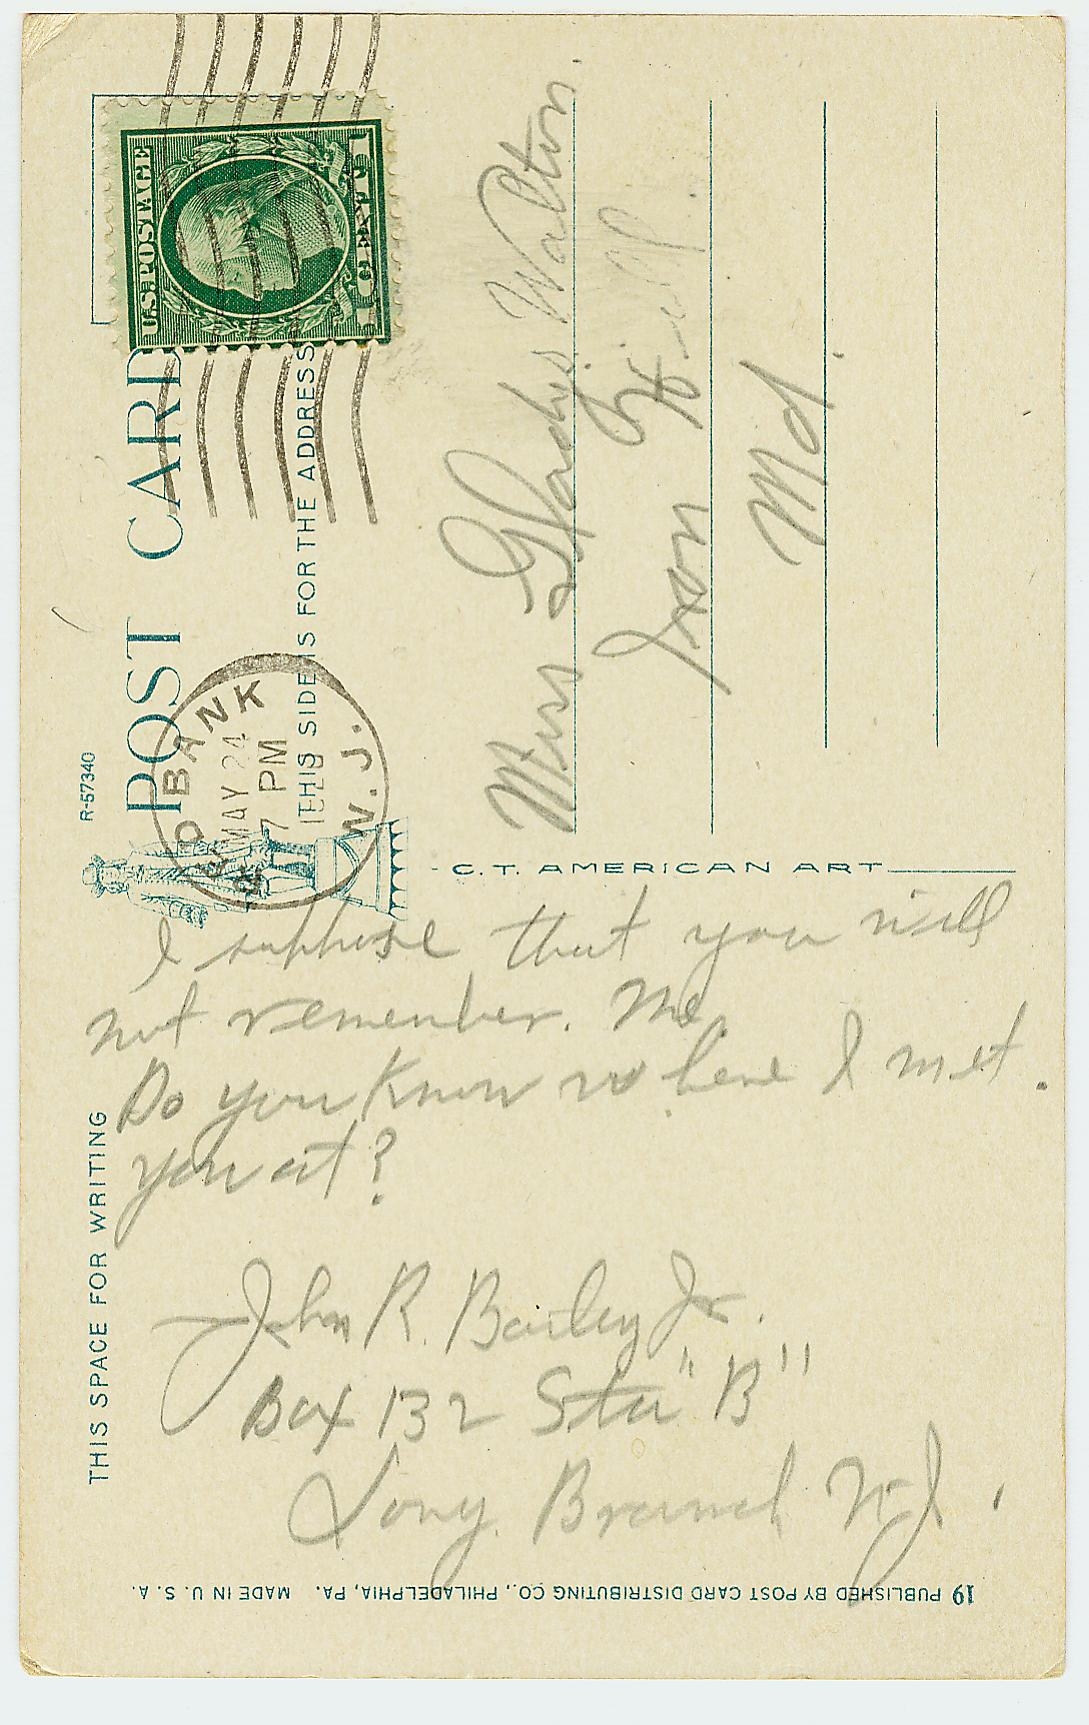 POST CARD
THIS SIDE IS FOR THE ADDRESS
U.S. POSTAGE
1 CENT 1
RED BANK
N.J.
MAY 24
7 PM
R-57340
Miss Gladys Walton.
Oxon Hill.
Md.
C.T. AMERICAN ART
THIS SPACE FOR WRITING
I suppose that you will
not remember. Me.
Do you know where I met.
you at?
John R. Bailey Jr.
Box 132 Sta "B"
Long Branch N.J.
19 PUBLISHED BY POST CARD DISTRIBUTING CO., PHILADELPHIA, PA. MADE IN U.S.A.